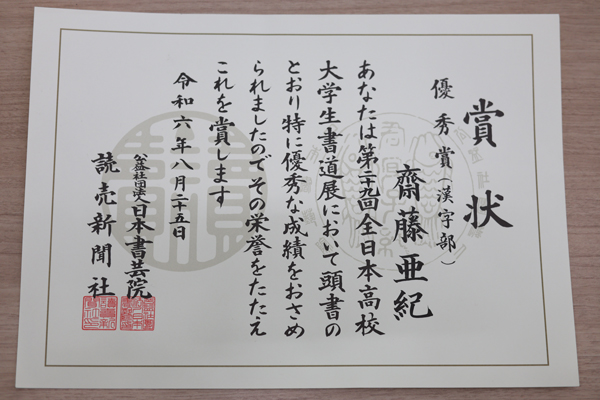 賞状
優秀賞(漢字部)
齋藤亜紀
あなたは第二十九回全日本高校
大学生書道展において頭書の
とおり特に優秀な成績をおさめ
られましたのでその栄誉をたたえ
これを賞します
令和六年八月二十五日
公益社団法人日本書芸院
読売新聞社